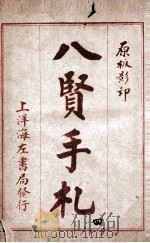 原版影印
八賢手札
四
上洋海左書局發行